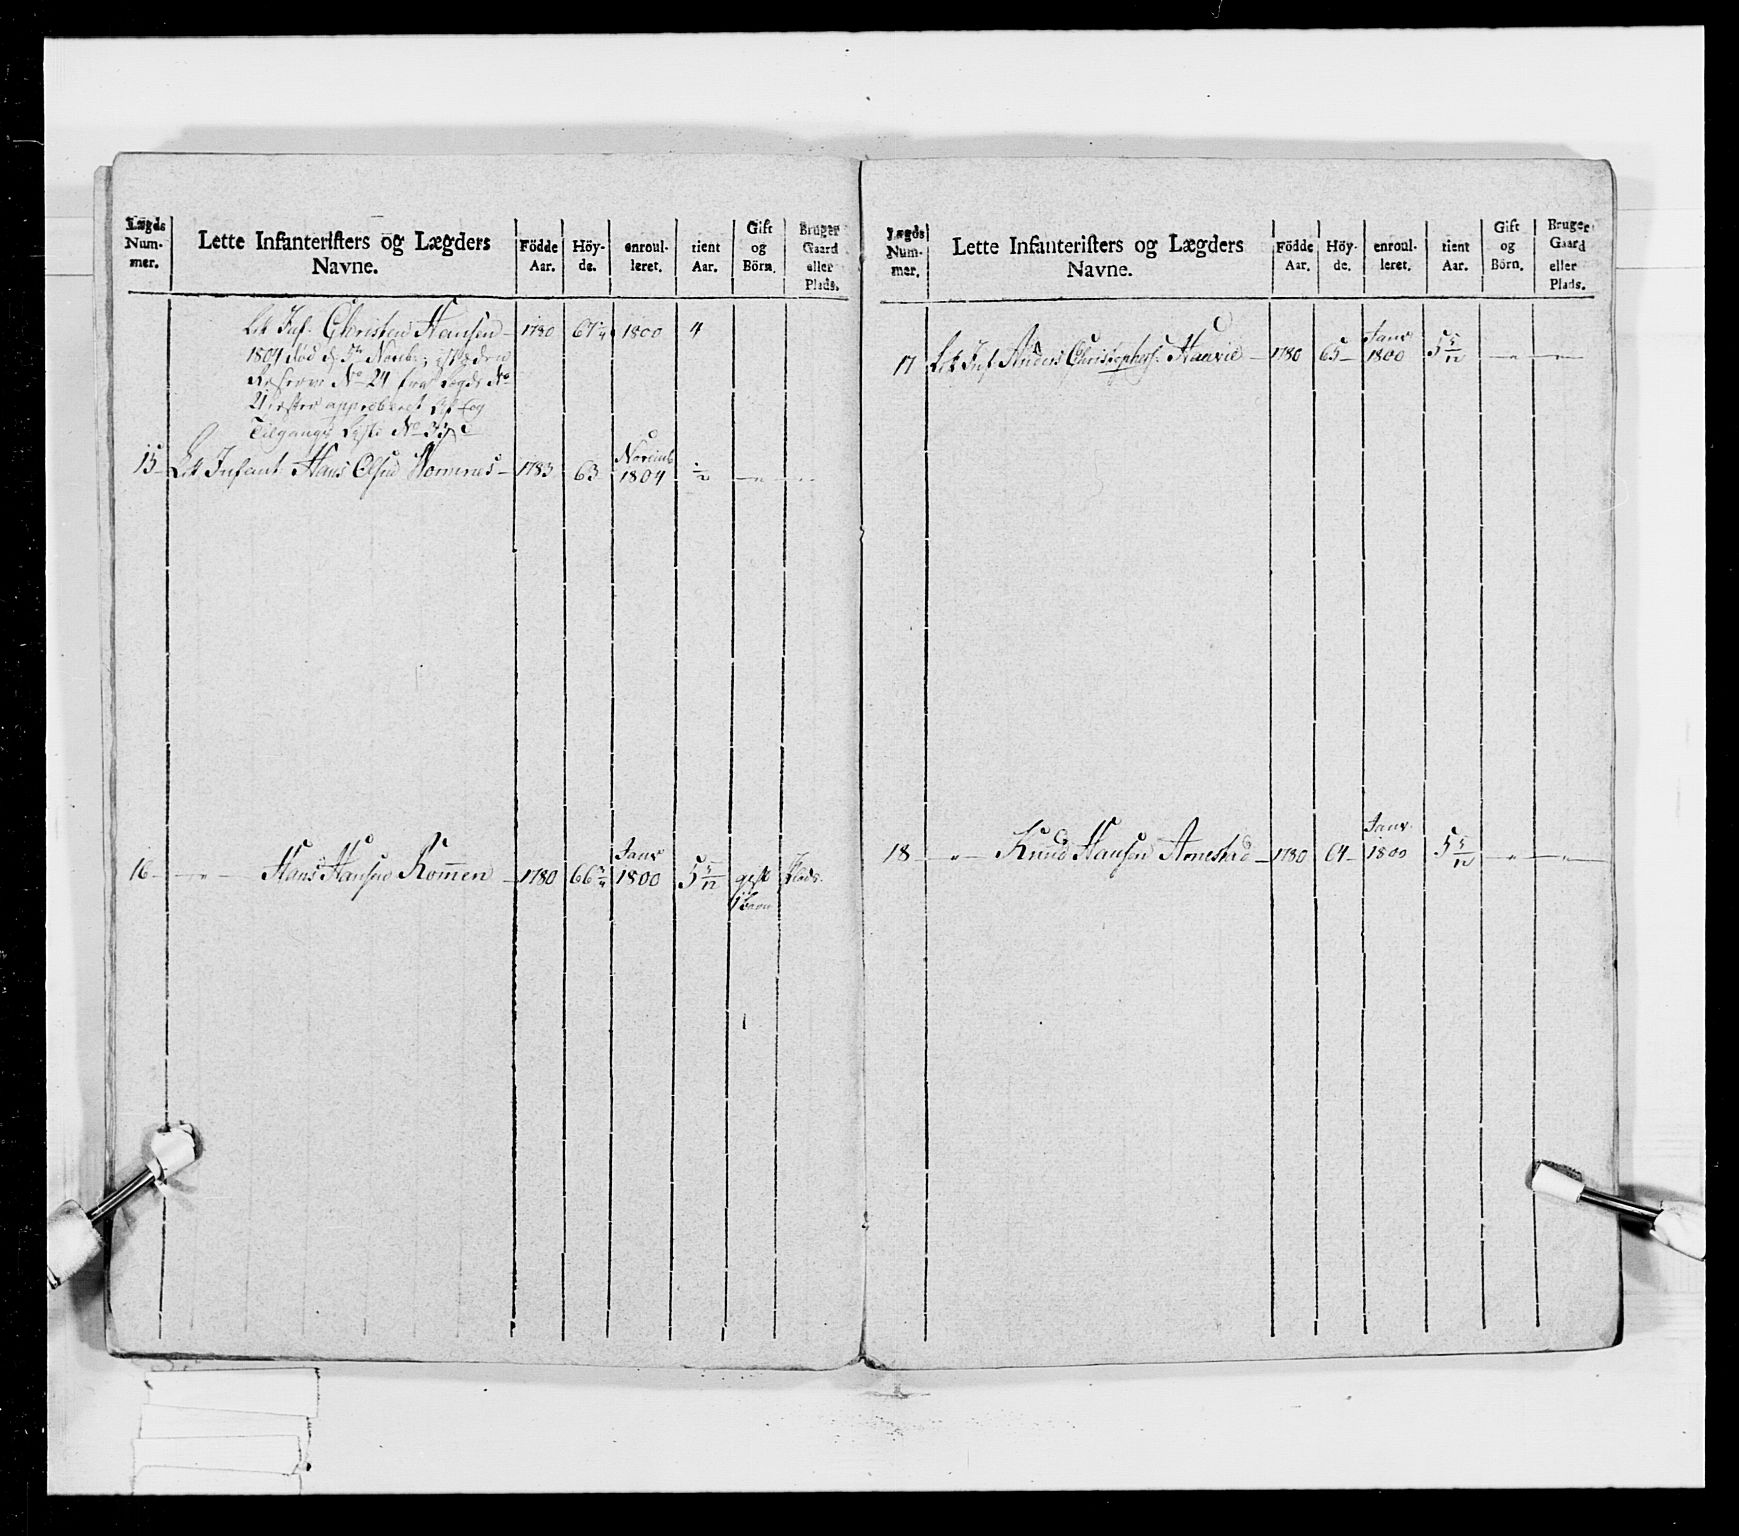 Lægds Num- mer. Lette Infanterifters og Lægders Navne. Födde Aar. Höy- de. enroul- leret. tient Aar. Gift og Börn. Bruger Gaard eller Plads.
Let Inf. Christen Hansen 1780 67 1800 4
1804 død d. 5te Novbr;
No 24 fra Lægds No
21 approberet
Tilgangs Liste No
15 Let Infant Hans Olsen 1783 63 Novemb 1804 ½
16 Hans Hansen Romen 1780 66 Janr 1800 5 5/12 gift 1 barn Plads.
Lægds Num- mer. Lette Infanterifters og Lægders Navne. Födde Aar. Höy- de. enroul- leret. tient Aar. Gift og Börn. Bruger Gaard eller Plads.
17 Let Inf Anders Christophers. Haavie 1780 65 Janr 1800 5 5/12
18 Knud Hansen Arnestad 1780 64 Janr 1800 5 5/12